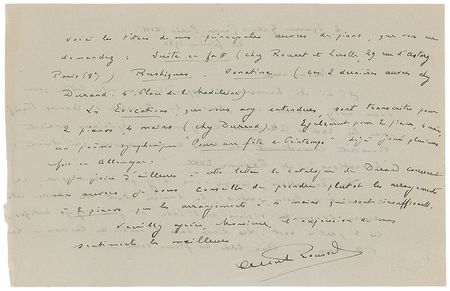 voici les titres de mes principales œuvres de piano, que vous me
demandez : Suite en fa# (chez Rouart et Lerolle, 29 rue d'Astorg
Paris (8e) Rustiques. Sonatine (ces 2 dernières œuvres chez
Durand. 4. Place de la Madeleine)
Les Évocations, que vous avez entendues sont transcrites pour
2 pianos 4 mains (chez Durand). Egalement pour 2 pianos, 4 mains,
un poème symphonique Pour une fête de Printemps déjà joué plusieurs
fois en Allemagne.
Je joins d'ailleurs à cette lettre le catalogue de Durand concernant
mes œuvres. Je vous conseille de prendre plutôt les arrangements
à 2 pianos que les arrangements à 4 mains qui sont insuffisants.
Veuillez agréer, Monsieur, l'expression de mes
sentiments les meilleurs
Albert Roussel